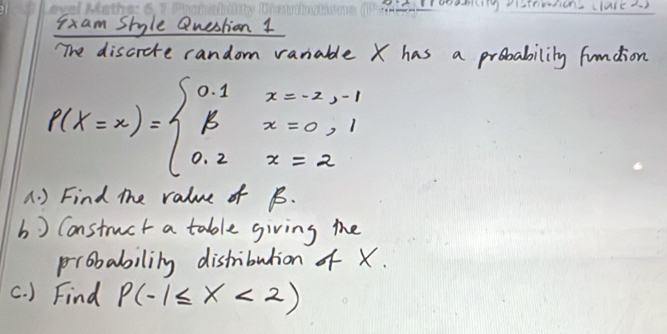 Level Maths: 6.1 Probability Distributions
Exam Style Question 1
The discrete random variable X has a probability function
P(X = x) = { 0.1 x = -2, -1
β x = 0, 1
0.2 x = 2
a.) Find the value of β.
b.) Construct a table giving the
probability distribution of X.
c.) Find P(-1 ≤ X < 2)